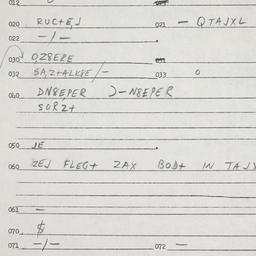 012
020 RUC+E,J 021 — QTAJXL
022 -/-
030 O,Z8ERE 031
032 SA,Z+ALKPE/- 033 0
040 DN8EPER )-N8EPER
SORZ+
050 JE
060 ZEJ FLEG+ ZAX BOD+ IN TAJ
061 —
070 $
071 -/- 072 —